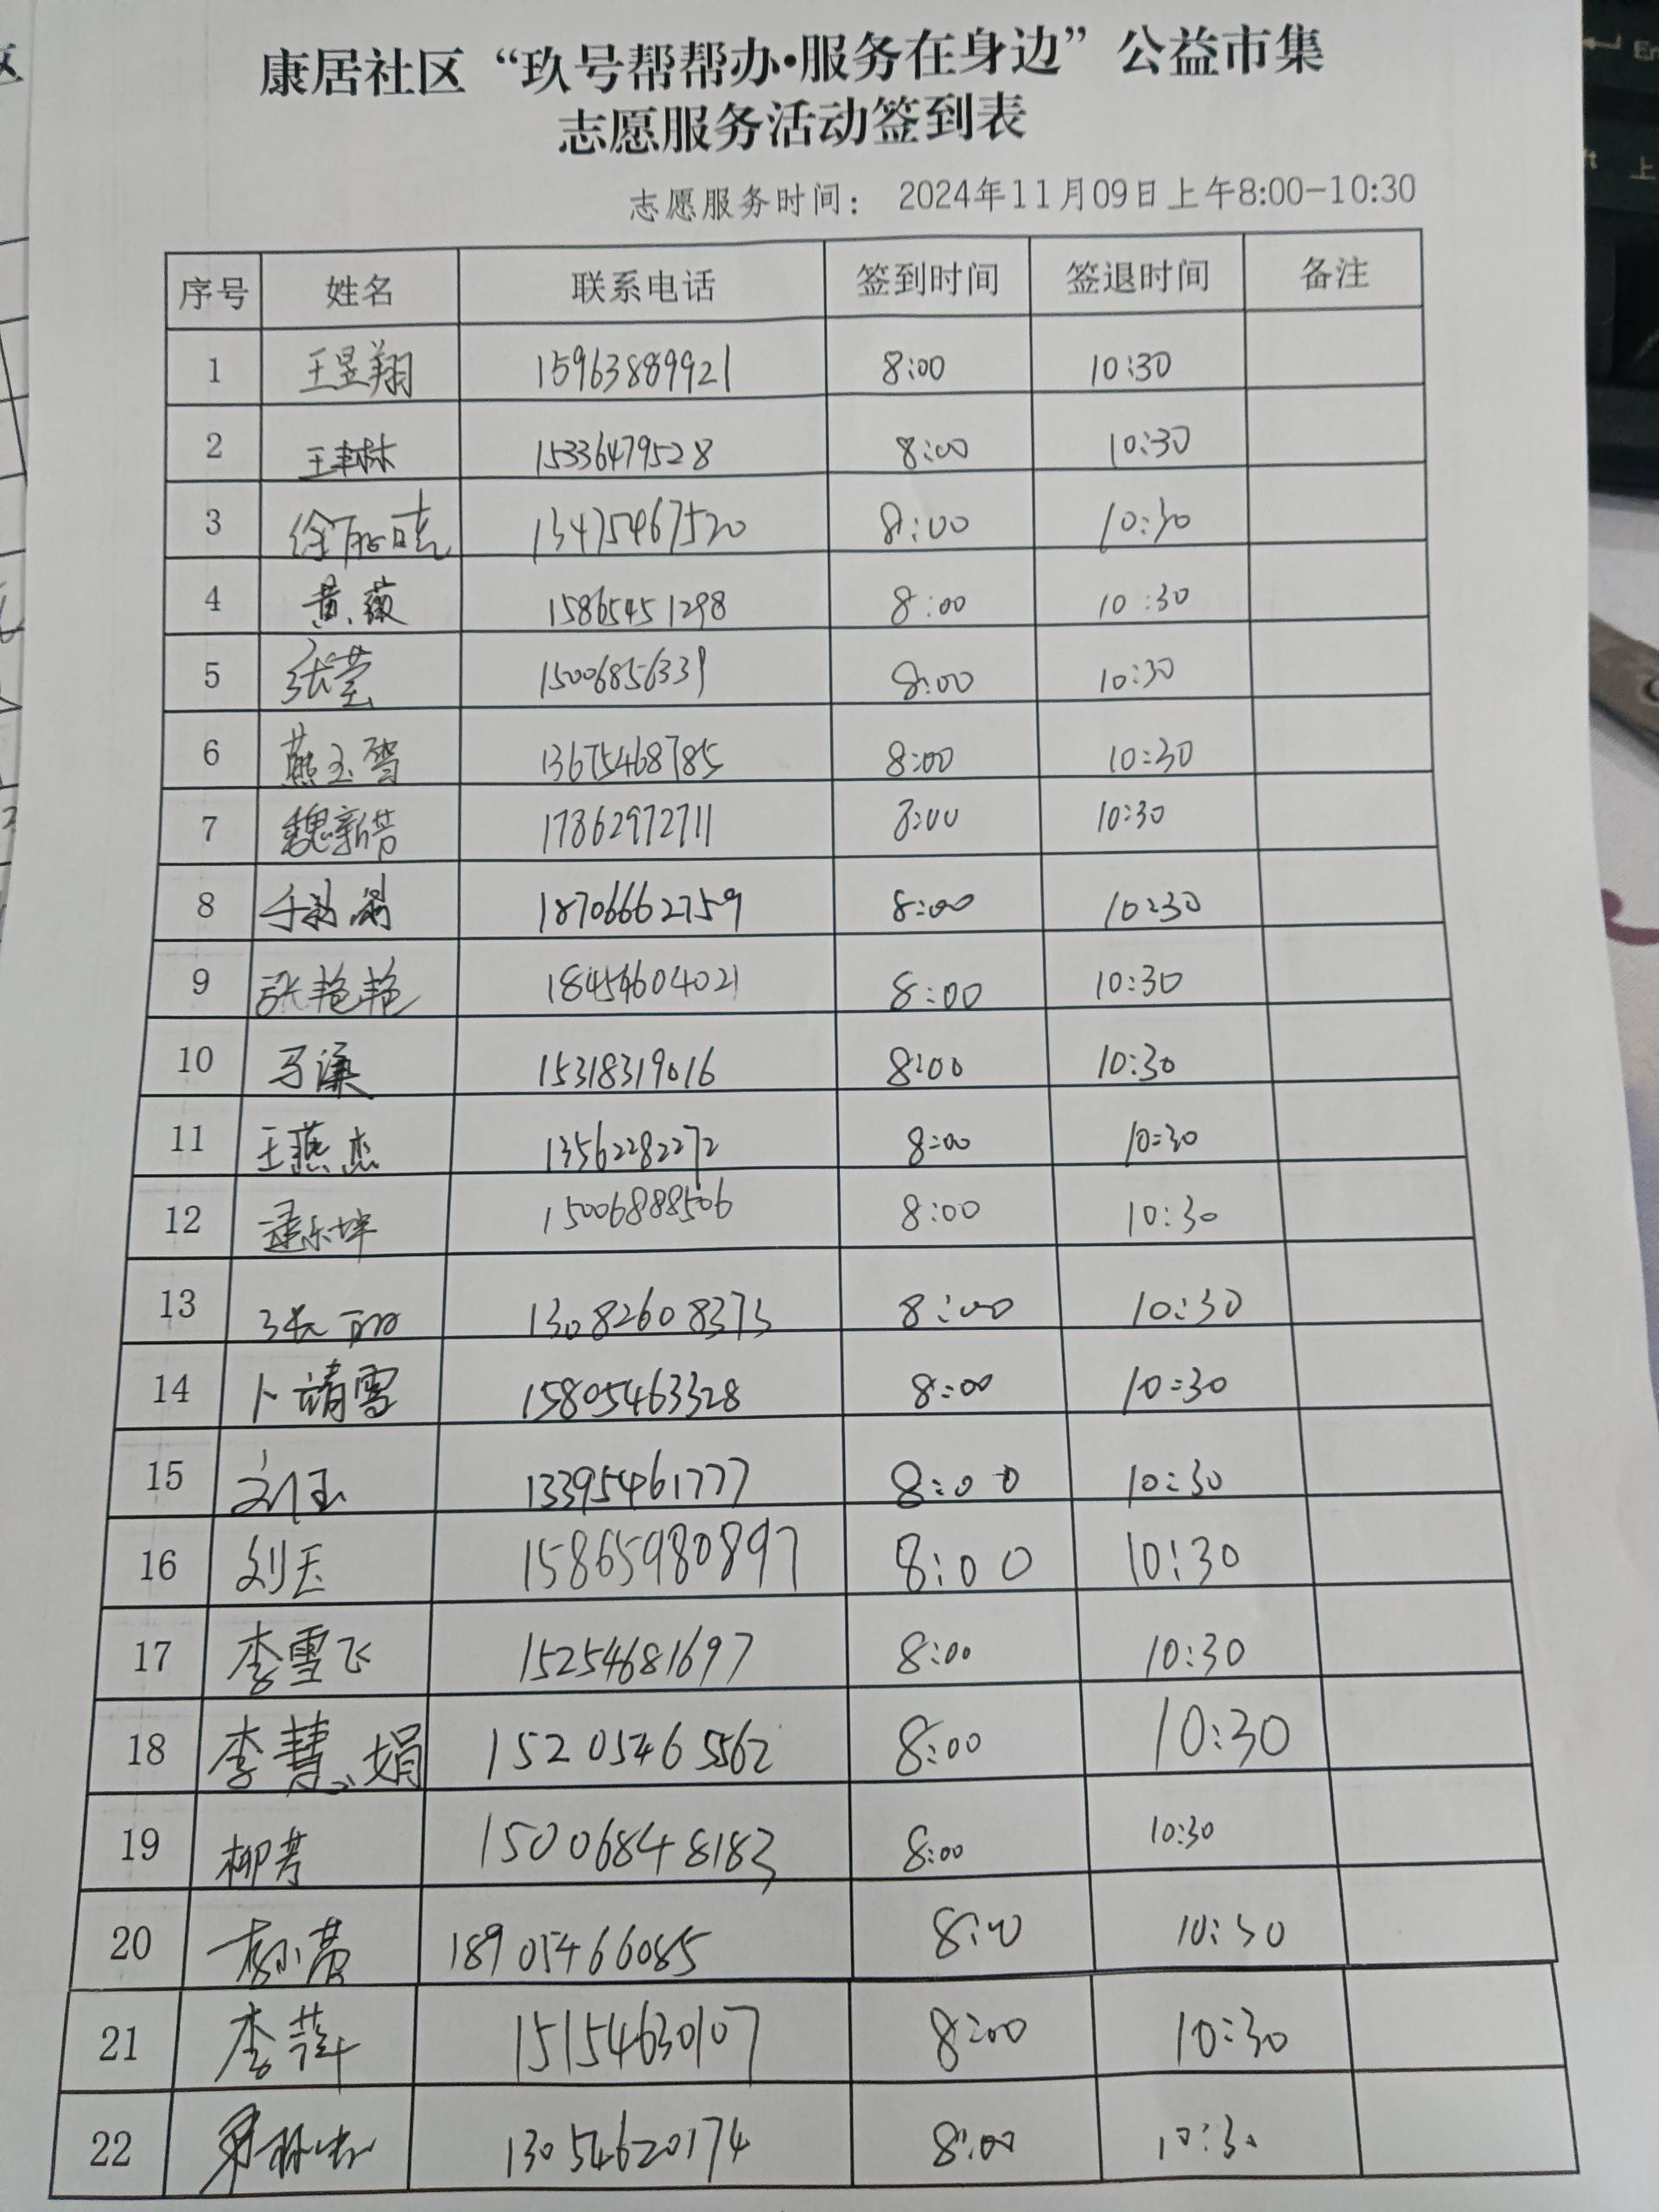 康居社区“玖号帮帮办·服务在身边”公益市集
志愿服务活动签到表
志愿服务时间： 2024年11月09日上午8:00-10:30
序号 姓名 联系电话 签到时间 签退时间 备注
1 王昱翔 15963889921 8:00 10:30
2 15336479528 8:00 10:30
3 13475467520 8:00 10:30
4 黄薇 15865451298 8:00 10:30
5 张莹 15006856339 8:00 10:30
6 燕玉雪 13675468785 8:00 10:30
7 魏新芳 17862972711 8:00 10:30
8 18706662759 8:00 10:30
9 张艳艳 18454604021 8:00 10:30
10 15318319016 8:00 10:30
11 王燕杰 13562282272 8:00 10:30
12 15006888506 8:00 10:30
13 张丽 13082608373 8:00 10:30
14 卜靖雪 15805463328 8:00 10:30
15 刘玉 13395461777 8:00 10:30
16 刘玉 15865980897 8:00 10:30
17 李雪飞 15254681697 8:00 10:30
18 李慧娟 15205465562 8:00 10:30
19 柳芳 15006848183 8:00 10:30
20 18905466085 8:00 10:30
21 李萍 15154630107 8:00 10:30
22 13054620174 8:00 10:30